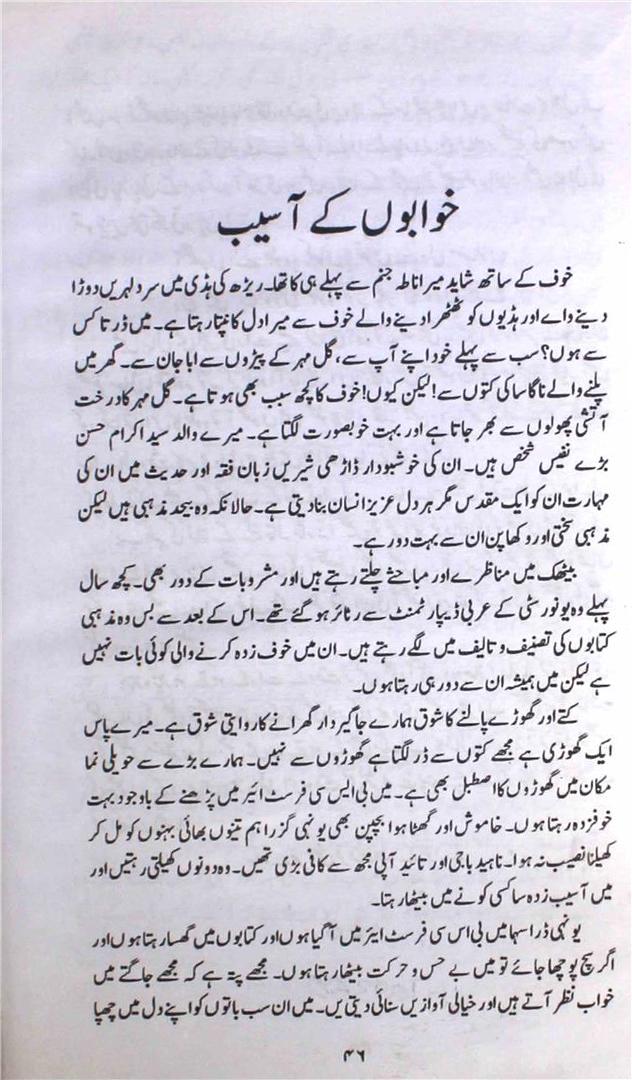 خوابوں کے آسیب
خوف کے ساتھ شاید میرا ناطہ جنم سے پہلے ہی کا تھا۔ ریڑھ کی ہڈی میں سرد لہریں دوڑا
دینے واے اور ہڈیوں کو ٹھٹھرا دینے والے خوف سے میرا دل کانپتا رہتا ہے۔ میں ڈرتا کس
سے ہوں؟ سب سے پہلے خود اپنے آپ سے، گل مہر کے پیڑوں سے ابا جان سے۔ گھر میں
پلنے والے ناگاساکی کتوں سے! لیکن کیوں! خوف کا کچھ سبب بھی ہوتا ہے۔ گل مہر کا درخت
آتشی پھولوں سے بھر جاتا ہے اور بہت خوبصورت لگتا ہے۔ میرے والد سید اکرام حسن
بڑے نفیس شخص ہیں۔ ان کی خوشبودار ڈاڑھی شیریں زبان فقہ اور حدیث میں ان کی
مہارت ان کو ایک مقدس مگر ہر دل عزیز انسان بنا دیتی ہے۔ حالانکہ وہ بیحد مذہبی ہیں لیکن
مذہبی سختی اور وکھاپن ان سے بہت دور ہے۔
بیٹھک میں مناظرے اور مباحثے چلتے رہتے ہیں اور مشروبات کے دور بھی۔ کچھ سال
پہلے وہ یونورسٹی کے عربی ڈیپارٹمنٹ سے رٹائر ہو گئے تھے۔ اس کے بعد سے بس وہ مذہبی
کتابوں کی تصنیف و تالیف میں لگے رہتے ہیں۔ ان میں خوف زدہ کرنے والی کوئی بات نہیں
ہے لیکن میں ہمیشہ ان سے دور ہی رہتا ہوں۔
کتے اور گھوڑے پالنے کا شوق ہمارے جاگیردار گھرانے کا روایتی شوق ہے۔ میرے پاس
ایک گھوڑی ہے مجھے کتوں سے ڈر لگتا ہے گھوڑوں سے نہیں۔ ہمارے بڑے سے حویلی نما
مکان میں گھوڑوں کا اصطبل بھی ہے۔ میں بی ایس سی فرسٹ ائیر میں پڑھنے کے باوجود بہت
خوفزدہ رہتا ہوں۔ خاموش اور گھٹا ہوا بچپن بھی یونہی گزرا ہم تینوں بھائی بہنوں کو مل کر
کھیلنا نصیب نہ ہوا۔ ناہید باجی اور تائید آپی مجھ سے کافی بڑی تھیں۔ وہ دونوں کھیلتی رہتیں اور
میں آسیب زدہ سا کسی کونے میں بیٹھا رہتا۔
یونہی ڈرا سہا میں بی اس سی فرسٹ ایئر میں آ گیا ہوں اور کتابوں میں گھسا رہتا ہوں اور
اگر سچ پوچھا جائے تو میں بے حس و حرکت بیٹھا رہتا ہوں۔ مجھے پتہ ہے کہ مجھے جاگتے میں
خواب نظر آتے ہیں اور خیالی آوازیں سنائی دیتی یں۔ میں ان سب باتوں کو اپنے دل میں چھپا
۴۶